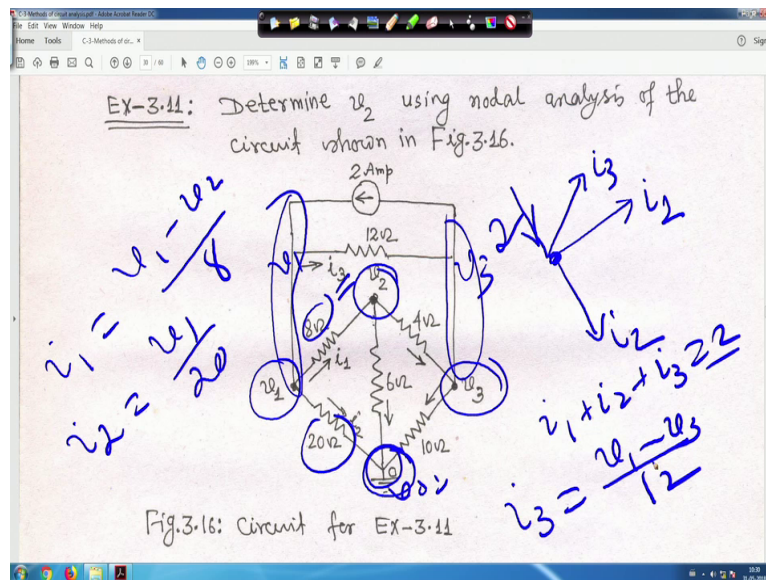 C-3-Methods of circuit analysis.pdf - Adobe Acrobat Reader DC
File Edit View Window Help
Home Tools C-3-Methods of cir... ×
Sign
30 / 60
199%
EX-3.11: Determine v2 using nodal analysis of the
circuit shown in Fig.3.16.
2 Amp
12Ω
v1
i3
v2
v3
8Ω
4Ω
i1
6Ω
v1
v3
i2
20Ω
10Ω
0
Fig.3.16: Circuit for EX-3.11
i1 = v1-v2/8
i2 = v1/20
2
i3
i2
i2
i1+i2+i3=2
i3 = v1-v3/12
10:39